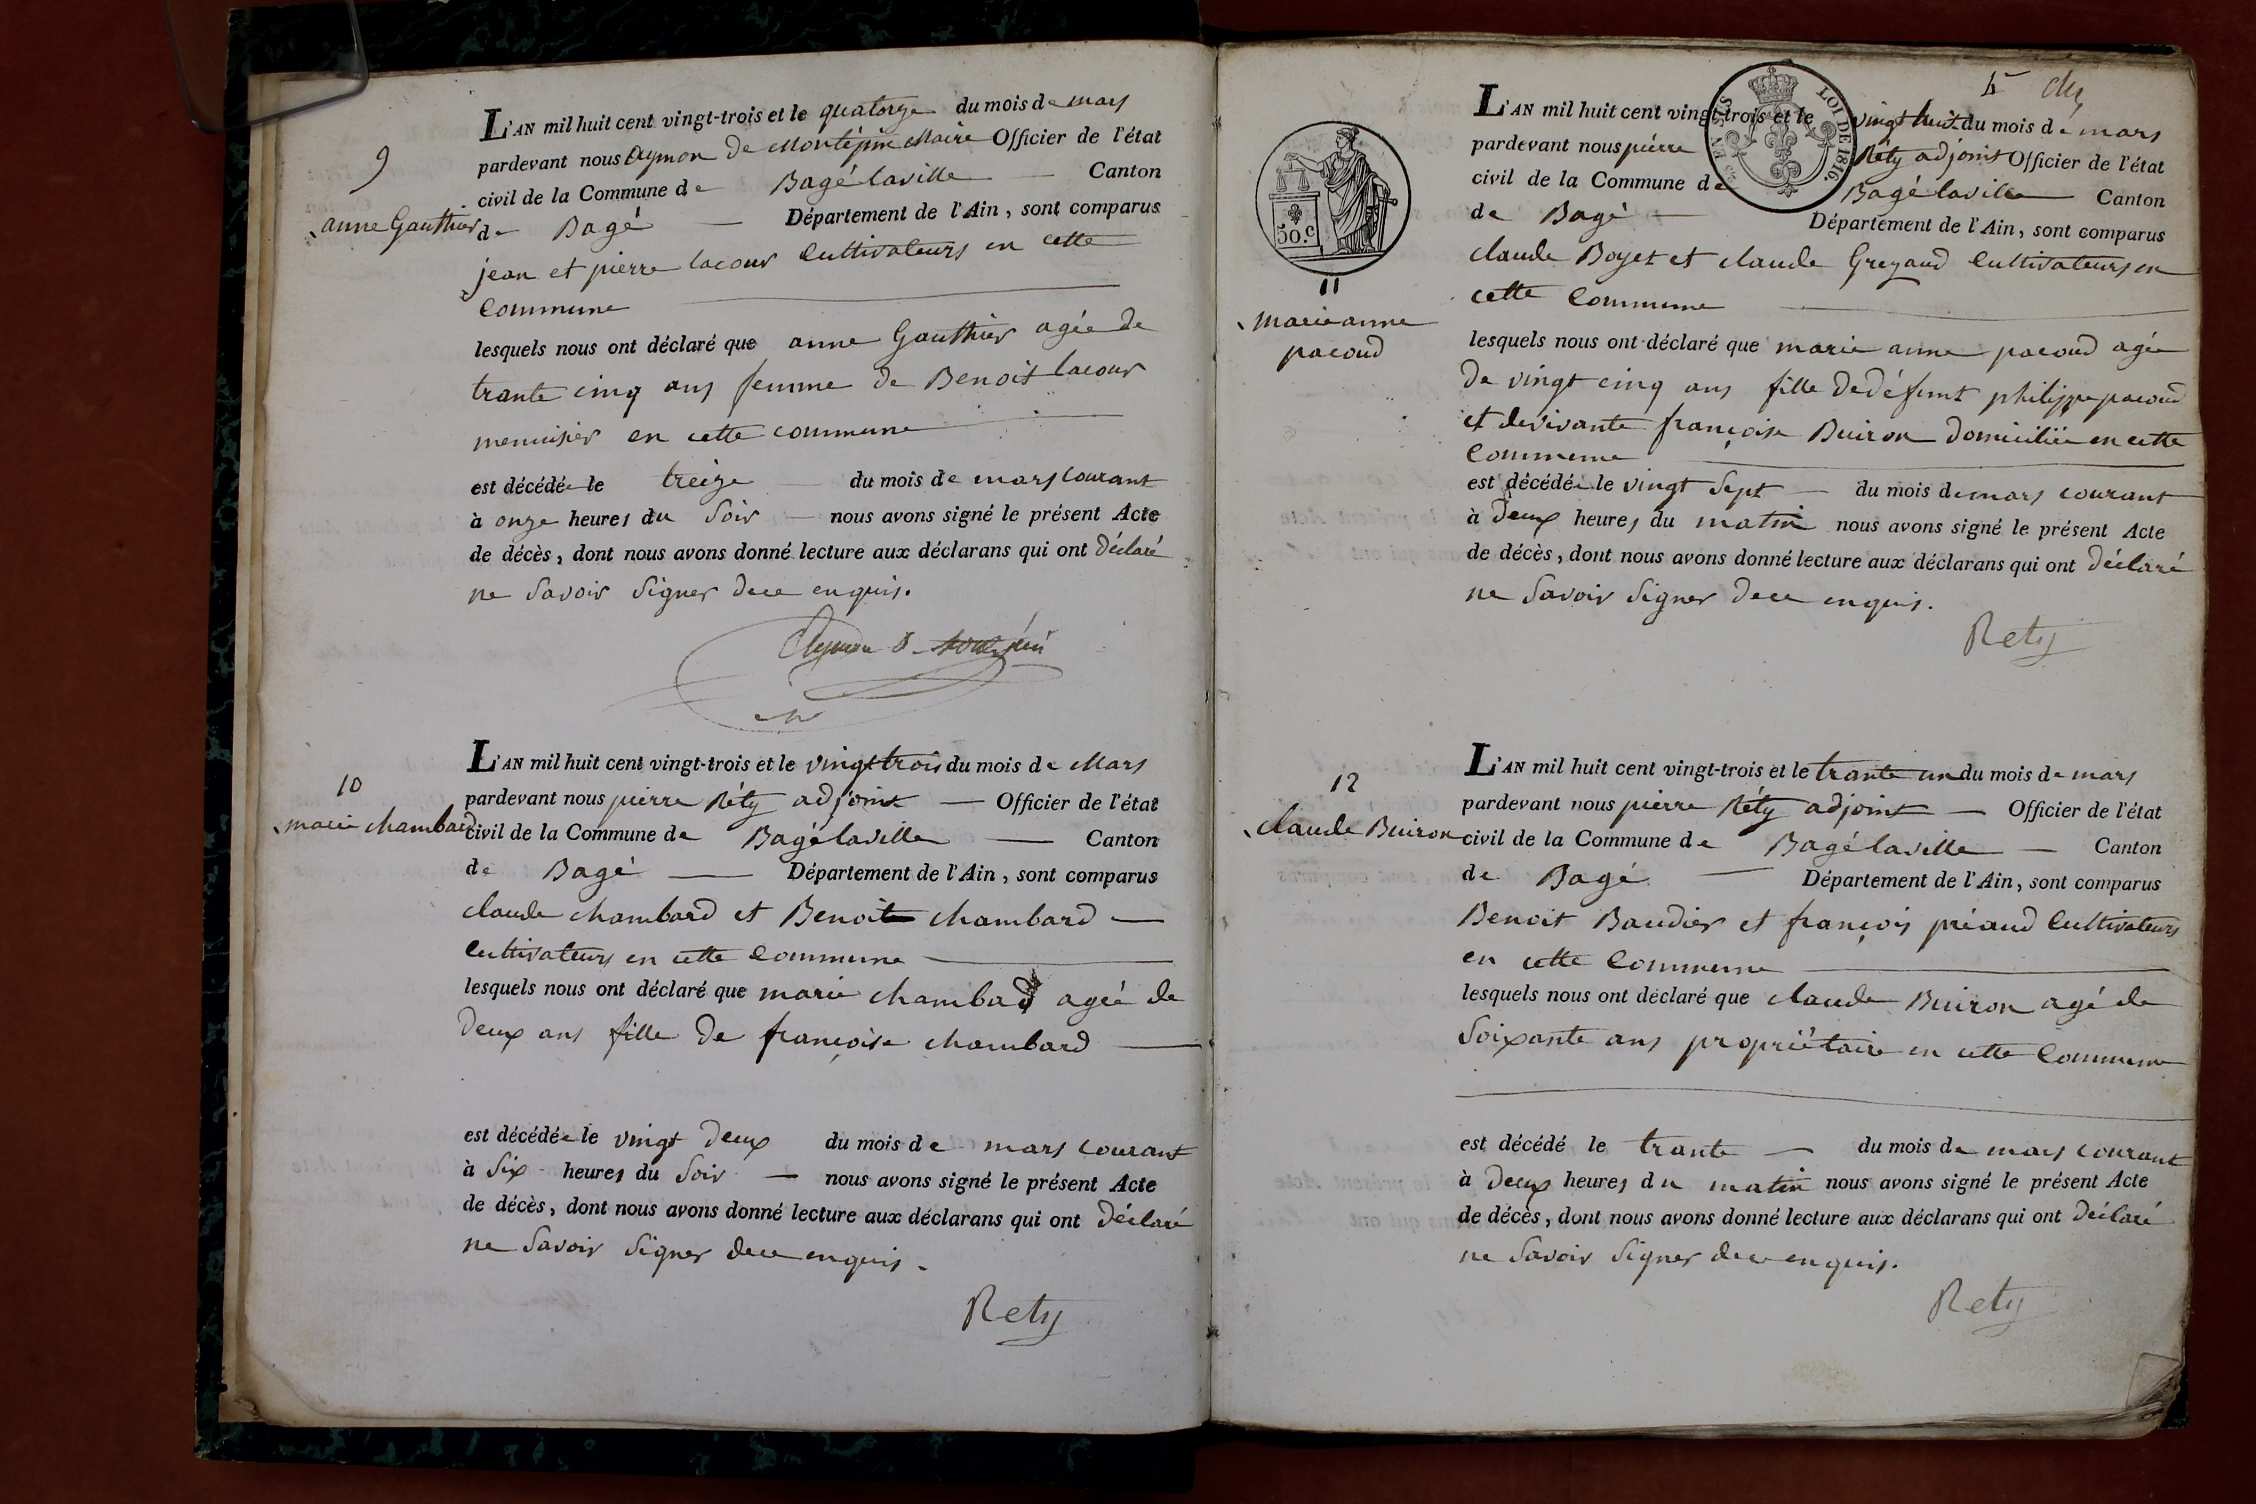 9
anne Gauthier
L'AN mil huit cent vingt-trois et le quatorze du mois de mars
pardevant nous Aymon de Montépin Maire Officier de l'état
civil de la Commune de Bagé laville Canton
de Bagé Département de l'Ain, sont comparus
jean et pierre lacour Cultivateurs en cette
Commune
lesquels nous ont déclaré que anne Gauthier agée de
trante cinq ans femme de Benoit lacour
menuisier en cette commune
est décédée le treize du mois de mars courant
à onze heures du Soir nous avons signé le présent Acte
de décès, dont nous avons donné lecture aux déclarans qui ont déclaré
ne Savoir Signer de ce enquis.
Aymon d
10
marie chambard
L'AN mil huit cent vingt-trois et le vingt trois du mois de Mars
pardevant nous pierre Réty adjoint Officier de l'état
civil de la Commune de Bagé laville Canton
de Bagé Département de l'Ain, sont comparus
claude chambard et Benoit chambard
Cultivateurs en cette Commune
lesquels nous ont déclaré que marie chambad agée de
deux ans fille de françoise chambard
est décédée le vingt deux du mois de mars courant
à Six heures du Soir nous avons signé le présent Acte
de décès, dont nous avons donné lecture aux déclarans qui ont déclaré
ne Savoir Signer de ce enquis.
Rety
LOI DE 1816.
50.c
11
marie anne
pacoud
L'AN mil huit cent vingt-trois et le vingt huit du mois de mars
pardevant nous pierre Réty adjoint Officier de l'état
civil de la Commune de Bagé laville Canton
de Bagé Département de l'Ain, sont comparus
claude Boyet et claude Greyaud Cultivateurs en
cette Commune
lesquels nous ont déclaré que marie anne pacoud agée
de vingt cinq ans fille de défunt philippe pacoud
et de vivante françoise Buiron domiciliée en cette
Commune
est décédée le vingt Sept du mois de mars courant
à deux heures du matin nous avons signé le présent Acte
de décès, dont nous avons donné lecture aux déclarans qui ont déclaré
ne Savoir Signer de ce enquis.
Rety
12
claude Buiron
L'AN mil huit cent vingt-trois et le trante un du mois de mars
pardevant nous pierre Réty adjoint Officier de l'état
civil de la Commune de Bagé laville Canton
de Bagé Département de l'Ain, sont comparus
Benoit Baudier et françois préaud Cultivateurs
en cette Commune
lesquels nous ont déclaré que claude Buiron agé de
Soixante ans propriétaire en cette Commune
est décédé le trante du mois de mars courant
à deux heures du matin nous avons signé le présent Acte
de décès, dont nous avons donné lecture aux déclarans qui ont déclaré
ne Savoir Signer de ce enquis.
Rety